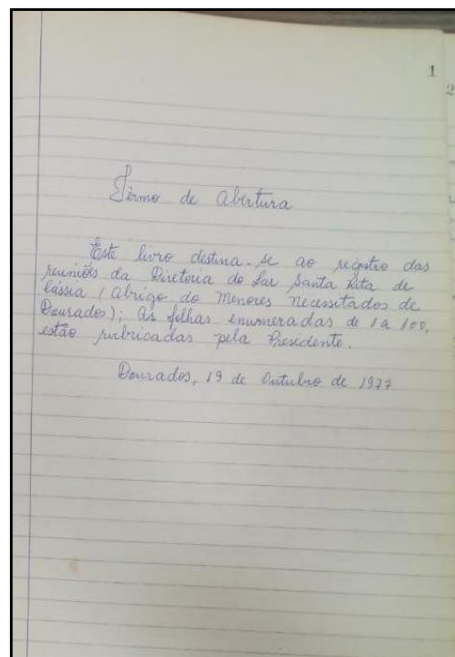 1
2
Têrmo de Abertura
Este livro destina-se ao registro das
reuniões da Diretoria do Lar Santa Rita de
Cássia (Abrigo do Menores Necessitados de
Dourados); As folhas enumeradas de 1 a 100,
estão rubricadas pela Presidente.
Dourados, 19 de Outubro de 1977